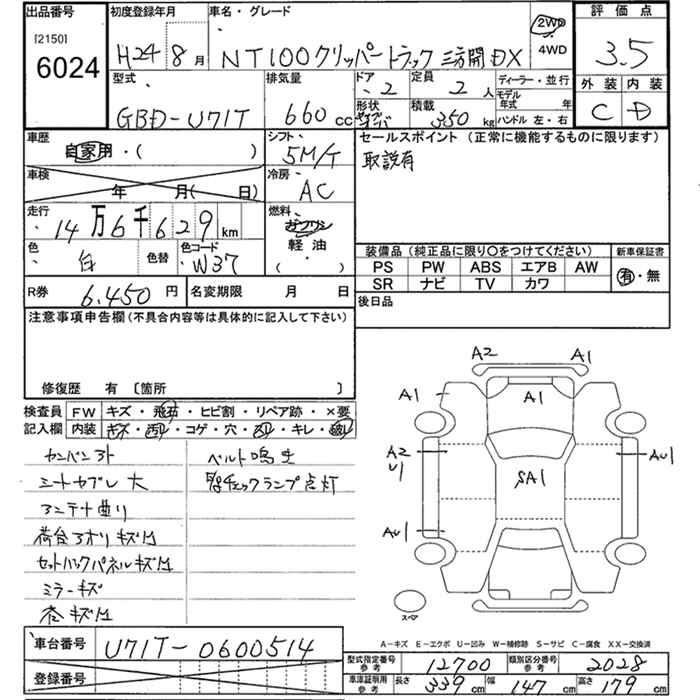 出品番号 初度登録年月 車名・グレード 評価点
[2150] 6024
H24年8月 NT100クリッパートラック 三方開 DX 2WD 4WD 3.5
型式 排気量 ドア 定員 ディーラー・並行 外装 内装
GBD-U71T 660cc 2 2人 モデル年式 年 C D
形状 積載 350kg ハンドル 左・右
車歴 シフト セールスポイント (正常に機能するものに限ります)
自家用・( ) 5M/T 取説有
車検 冷房
年 月( 日) AC
走行 燃料
14万6千629km ガソリン
軽油
( )
色 色替 色コード 装備品 (純正品に限り○をつけてください) 新車保証書
白 W37 PS PW ABS エアB AW 有・無
SR ナビ TV カワ
R券 6,450円 名変期限 月 日 後日品
注意事項申告欄 (不具合内容等は具体的に記入して下さい)
修復歴 有 〔箇所 〕
検査員 FW キズ・飛石・ヒビ割・リペア跡・×要
記入欄 内装
ベルト鳴き
ミラーキズ
チェックランプ点灯
A2 A1
A1 A1
A2 U1 SA1 AU1
AU1
スペア
A-キズ E-エクボ U-凹み W-補修跡 S-サビ C-腐食 XX-交換済
車台番号 U71T-0600514
登録番号
型式指定番号 参考 12700 類別区分番号 参考 2028
車庫証明用 参考 長さ 339cm 幅 147cm 高さ 179cm